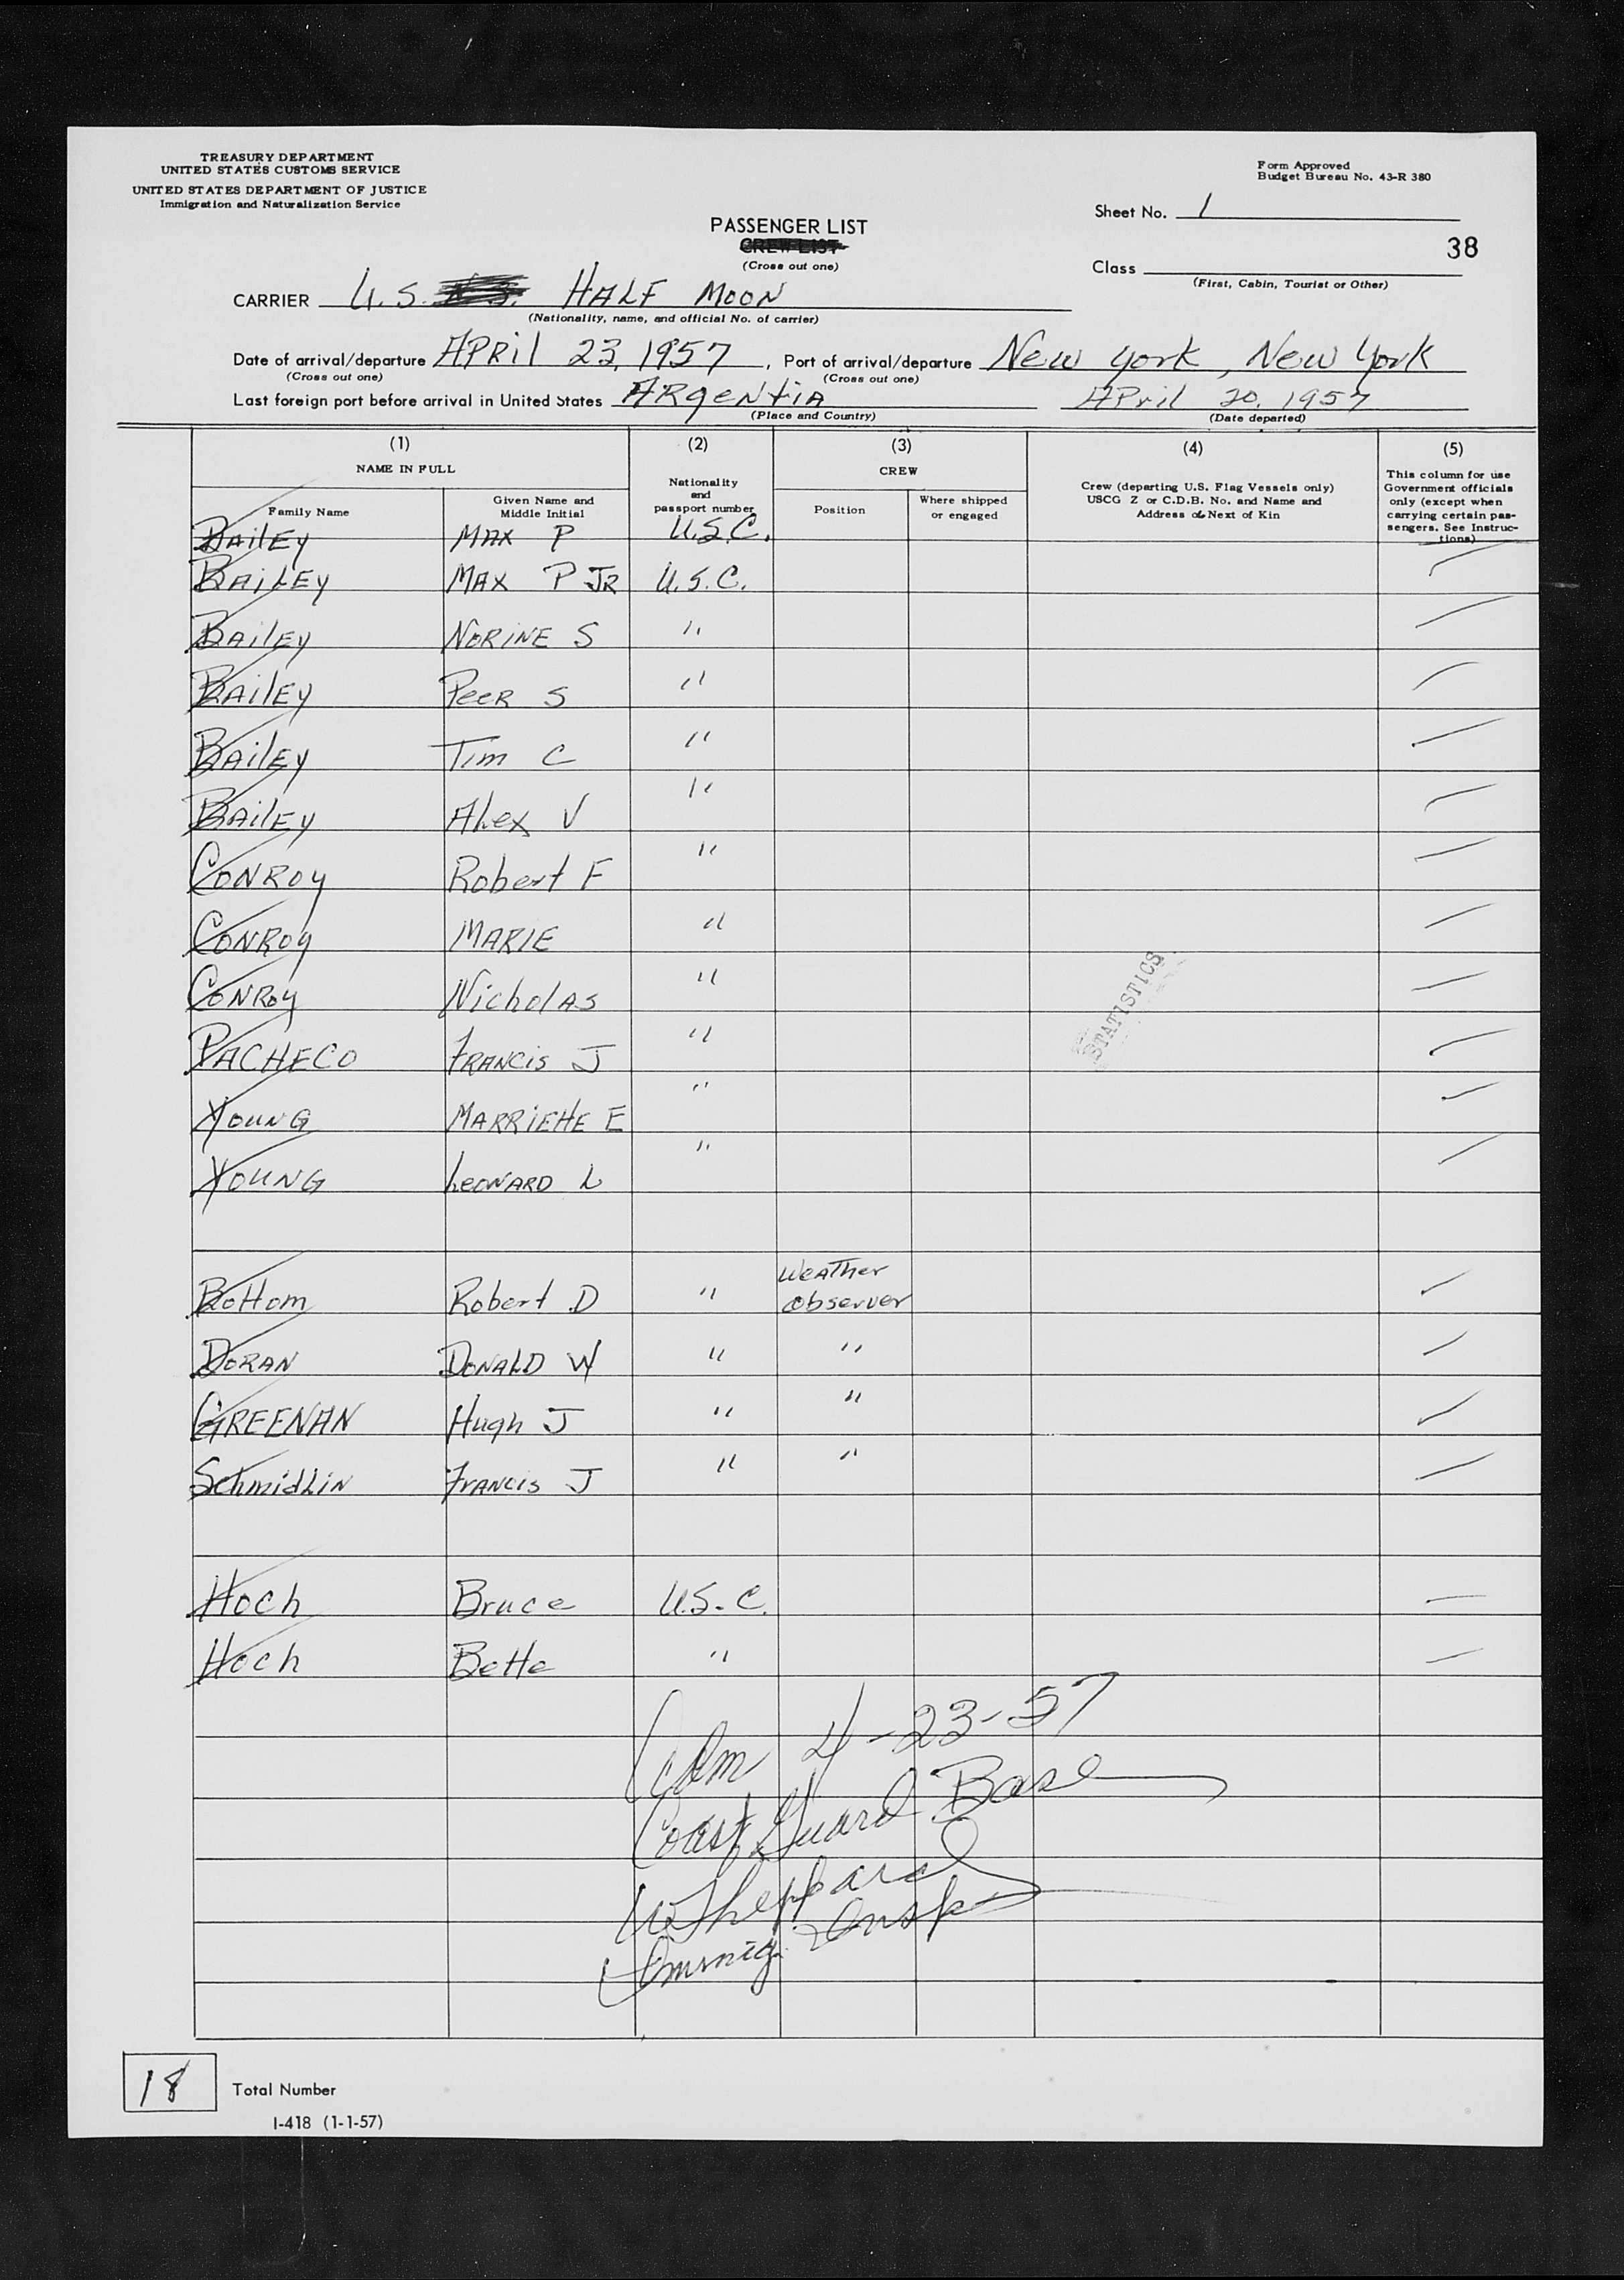 TREASURY DEPARTMENT
UNITED STATES CUSTOMS SERVICE
UNITED STATES DEPARTMENT OF JUSTICE
Immigration and Naturalization Service
Form Approved
Budget Bureau No. 43-R 380
Sheet No. 1
PASSENGER LIST
CREW LIST
(Cross out one)
38
Class
(First, Cabin, Tourist or Other)
CARRIER U.S. HALF MOON
(Nationality, name, and official No. of carrier)
Date of arrival/departure APRIL 23, 1957, Port of arrival/departure New York, New York
(Cross out one) (Cross out one)
Last foreign port before arrival in United States ARgentiA April 20, 1957
(Place and Country) (Date departed)
(1) (2) (3) (4) (5)
NAME IN FULL
Family Name
Given Name and
Middle Initial
Nationality
and
passport number
CREW
Position
Where shipped
or engaged
Crew (departing U.S. Flag Vessels only)
USCG Z or C.D.B. No. and Name and
Address of Next of Kin
This column for use
Government officials
only (except when
carrying certain pas-
sengers. See Instruc-
tions)
BAILEY MAX P U.S.C.
BAILEY MAX P JR U.S.C.
BAILEY NORINE S "
BAILEY PEER S "
BAILEY Tim C "
BAILEY Alex V "
CONROY Robert F "
CONROY MARIE "
CONROY Nicholas "
PACHECO FRANCIS J "
YOUNG MARRIETTE E "
YOUNG LEONARD L "
STATISTICS
Bottom Robert D " Weather
Observer
DORAN DONALD W " "
GREENAN Hugh J " "
Schmidlin Francis J " "
Hoch Bruce U.S.C.
Hoch Bette "
Adm 4-23-57
Coast Guard Base
W Sheppard
Immig. Insp
18 Total Number
I-418 (1-1-57)